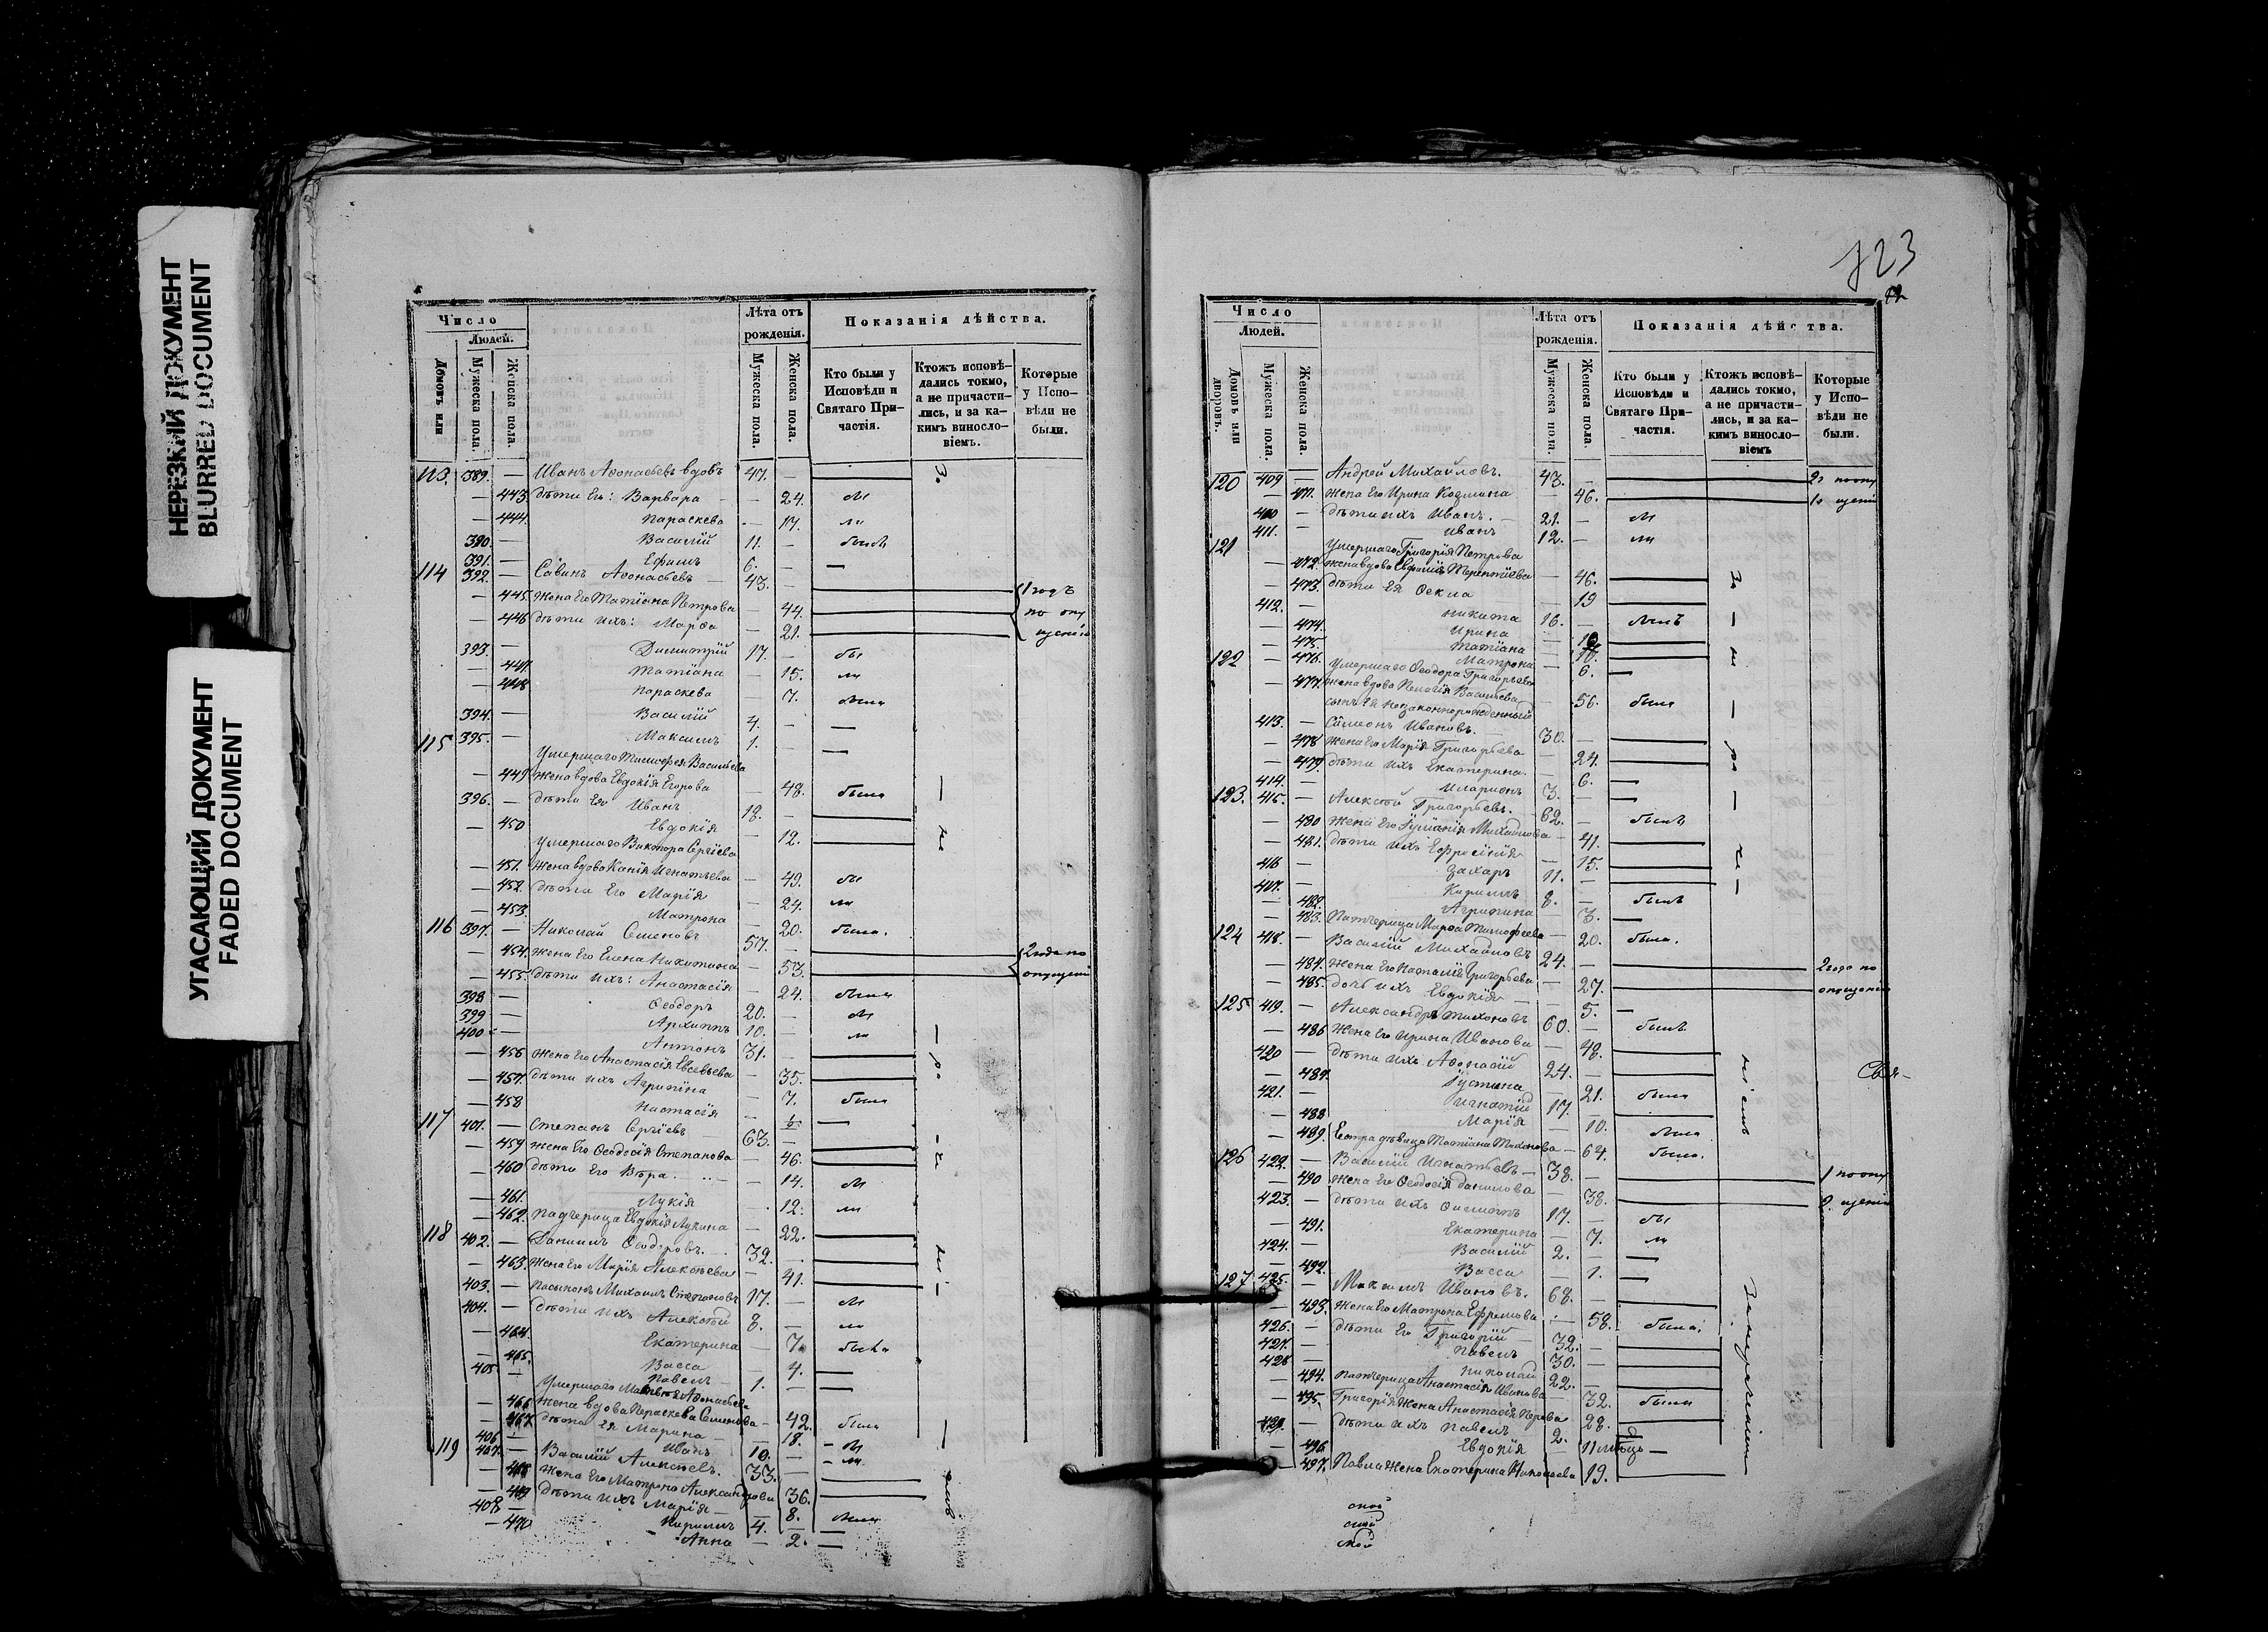 НЕРЕЗКИЙ ДОКУМЕНТ
BLURRED DOCUMENT
УГАСАЮЩИЙ ДОКУМЕНТ
FADED DOCUMENT
Число
Людей.
Домовъ или
Мужеска пола.
Женска пола.
Лѣта отъ рожденія.
Мужеска пола.
Женска пола.
Показанія дѣйства.
Кто были у Исповѣди и Святаго Причастія.
Ктожъ исповѣдались токмо, а не причастились, и за какимъ винословіемъ.
Которые у Исповѣди не были.
113. 389. — Иванъ Аѳонасьевъ вдовъ 47. —
— 443 дѣти Его: Варвара — 24.
— 444. Параскева — 17.
390 — Василій 11. — былъ
391. — Ефимъ 6. — —
114 392. — Савинъ Аѳонасьевъ 43. — 1 годъ
— 445. Жена Его Татіана Петрова — 44. по опу
— 446 дѣти ихъ: Марѳа — 21. щенію
393. — Димитрій 17. — бы
— 447 Татіана — 15. ли
— 448 Параскева — 7.
394. — Василій 4. — —
115 395. — Максимъ 1. — —
Умершаго Тимофея Васильева
— 449 Жена вдова Евдокія Егорова — 48. была
396. — дѣти Ея Иванъ 18. —
— 450 Евдокія — 12.
Умершаго Виктора Сергіева
— 451. Жена вдова Ксенія Игнатьева — 49. бы
— 452. дѣти Его Марія — 24. ли
— 453. Матрона — 20. была.
116 397. — Николай Семеновъ 57. — 2 года по
— 454. Жена Его Елена Никитина — 53. опущенію
— 455. дѣти ихъ: Анастасія — 24. была
398 — Ѳеодоръ 20. —
399 — Архиппъ 10. — ли
400 — Антонъ 31. —
— 456 Жена Его Анастасія Евсевьева — 35.
— 457. дѣти ихъ Агрипина — 7. была
— 458 Настасія — ½ —
117 401. — Степанъ Сергіевъ 63. —
— 459 Жена Его Ѳеодосія Степанова — 46.
— 460 дѣти Его Вѣра. — 14.
— 461. Лукія — 12. ли
— 462. Падчерица Евдокія Лукина — 22.
118 402. — Даніилъ Ѳеодоровъ. 32. —
— 463. Жена Его Марія Алексѣева — 41.
403. — Пасынокъ Михаилъ Степановъ 17. —
404. — дѣти ихъ Алексѣй 8. — ли
— 464. Екатерина — 7. была
— 465. Васса — 4. —
405 — Павелъ 1. — —
Умершаго Матвѣя Аѳонасьева
— 466 Жена вдова Параскева Семенова — 42. была
— 467. дѣти Ея Марина — 18.
406 — Иванъ 10. — ли
119 407. — Василій Алексѣевъ. 33. —
— 468 Жена Его Матрона Александрова 36.
— 469 дѣти ихъ Марія — 8.
408 — Кирилъ 4. — —
— 470 Анна — 2. —
123
Число
Людей.
Домовъ или дворовъ.
Мужеска пола.
Женска пола.
Лѣта отъ рожденія.
Мужеска пола.
Женска пола.
Показанія дѣйства.
Кто были у Исповѣди и Святаго Причастія.
Ктожъ исповѣдались токмо, а не причастились, и за какимъ винословіемъ
Которые у Исповѣди не были.
120 409 — Андрей Михайловъ. 43. — 2г по опу
— 471. Жена Его Ирина Козмина — 46. 1г щенію
410 — дѣти ихъ Иванъ. 21. —
411. — Иванъ 12. — ли
121 Умершаго Григорія Петрова
— 472. Жена вдова Евфимія Терентіева — 46.
— 473. дѣти Ея Ѳекла — 19
412. — Никита 16. —
— 474. Ирина
— 475. Татіана — 10.
— 476. Матрона — 6. —
122 Умершаго Ѳеодора Григорьева
— 477. Жена вдова Пелагія Васильева — 56. была
сынъ Ея незаконнорожденный
413. — Симеонъ Ивановъ. 30. —
— 478 Жена Его Марія Григорьева — 24.
— 479 дѣти ихъ Екатерина — 6. —
414. — Иларіонъ 3. — —
123. 415. — Алексѣй Григорьевъ. 62. — былъ
— 480 Жена Его Іуліанія Михайлова — 41.
— 481. дѣти ихъ Ефросинія — 15.
416 — Захаръ 11. —
417. — Кирилъ 8. — былъ
— 482. Агрипина — 3. —
— 483. Падчерица Марѳа Тимофеева — 20. была.
124 418. — Василій Михайловъ 24. — 2 года по
— 484. Жена Его Наталія Григорьева — 27. опущенію
— 485. дочь ихъ Евдокія — 5. —
125 419. — Александръ Тихоновъ 60. — былъ
— 486 Жена Его Ирина Иванова — 48.
420 — дѣти ихъ Аѳонасій 24. —
— 487. Іустина — 21. была
421. — Игнатій 17. —
— 488 Марія — 10.
— 489. Сестра дѣвица Татіана Тихонова — 64. была.
126 422. — Василій Игнатьевъ 38. — 1 по опу
— 490 Жена Его Ѳеодосія Данилова — 38. 2. щенію
423. — дѣти ихъ Филиппъ 17. — бы
— 491. Екатерина — 7. ли
424. — Василій 2. — —
— 492. Васса — 1. —
127 425. — Максимъ Ивановъ. 68. —
— 493. Жена Его Матрона Ефремова — 58. была.
426. — дѣти Его Григорій 32. —
427. — Павелъ 30. —
428 — Николай 22. —
— 494. Падчерица Анастасія Иванова — 32. была
— 495. Григорія Жена Анастасія Петрова 28.
429. — дѣти ихъ Павелъ 2. —
— 496. Евдокія 11 мѣсяцъ —
— 497. Павла Жена Екатерина Николаева 19.